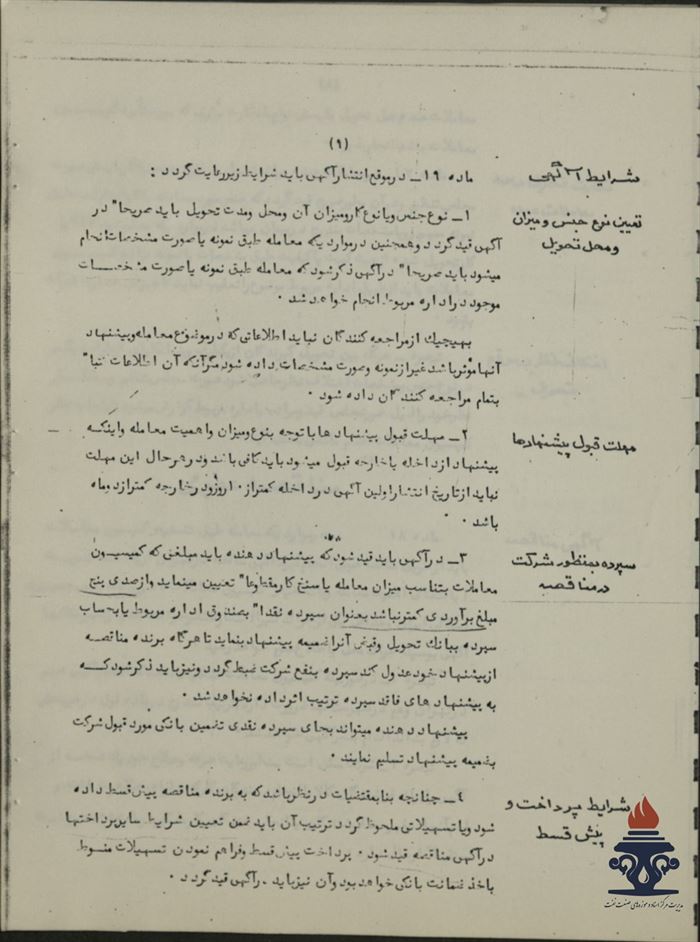 (۹)
شرایط آگهی
ماده ۱۹ــ درموقع انتشارآگهی باید شرایط زیررعایت گردد :
تعیین نوع جنس و میزان
و محل تحویل
۱ــ نوع جنس ویانوع کارومیزان آن ومحل ومدت تحویل باید صریحا" در
آگهی قیدگردد وهمچنین درمواردیکه معامله طبق نمونه یاصورت مشخصات انجام
میشود باید صریحا" درآگهی ذکرشودکه معامله طبق نمونه یاصورت مشخصــات
موجود دراداره مربوط انجام خواهدشد .
بهیچیك ازمراجعه کنندگان نباید اطلاعاتی که درموضوع معامله وپیشنهاد
آنها مؤثرباشد غیرازنمونه وصورت مشخصات داده شود مگرآنکه آن اطلاعات کتبا"
بتمام مراجعه کنندگان داده شود .
مهلت قبول پیشنهادها
۲ــ مهلت قبول پیشنهادهاباتوجه بنوع ومیزان واهمیت معامله واینکــه
پیشنهاد ازداخله یاخارجه قبول میشود باید کافی باشد ودرهرحال این مهلت
نباید ازتاریخ انتشاراولین آگهی درداخله کمتراز ۱۰روزودرخارجه کمترازدوماه
باشد .
سپرده بمنظور شرکت
در مناقصه
۳ــ درآگهی باید قیدشودکه پیشنهاددهنده باید مبلغی که کمیسیــون
معاملات بتناسب میزان معامله یاسنخ کارمقطوعا" تعیین مینماید وازصدی پنج
مبلغ برآوردی کمترنباشد بعنوان سپرده نقدا" بصندوق اداره مربوط یابحساب
سپرده ببانك تحویل وقبض آنراضمیمه پیشنهادبنماید تاهرگاه برنده مناقصــه
ازپیشنهاد خودعدول کند سپرده بنفع شرکت ضبط گردد ونیزباید ذکرشودکــه
به پیشنهادهای فاقد سپرده ترتیب اثرداده نخواهدشد .
پیشنهاددهنده میتواند بجای سپرده نقدی تضمین بانکی موردقبول شرکت
بضمیمه پیشنهاد تسلیم نمایند .
شرایط پرداخت و
پیش قسط
۴ــ چنانچه بنابمقتضیات درنظرباشدکه به برنده مناقصه پیش قسط داده
شود ویاتسهیلاتی ملحوظ گردد ترتیب آن باید ضمن تعیین شرایط سایرپرداختها
درآگهی مناقصه قیدشود . پرداخت پیش قسط وفراهم نمودن تسهیلات منــوط
باخذ ضمانت بانکی خواهدبود وآن نیزباید درآگهی قیدگردد .
مدیریت مرکز اسناد و موزه‌های صنعت نفت